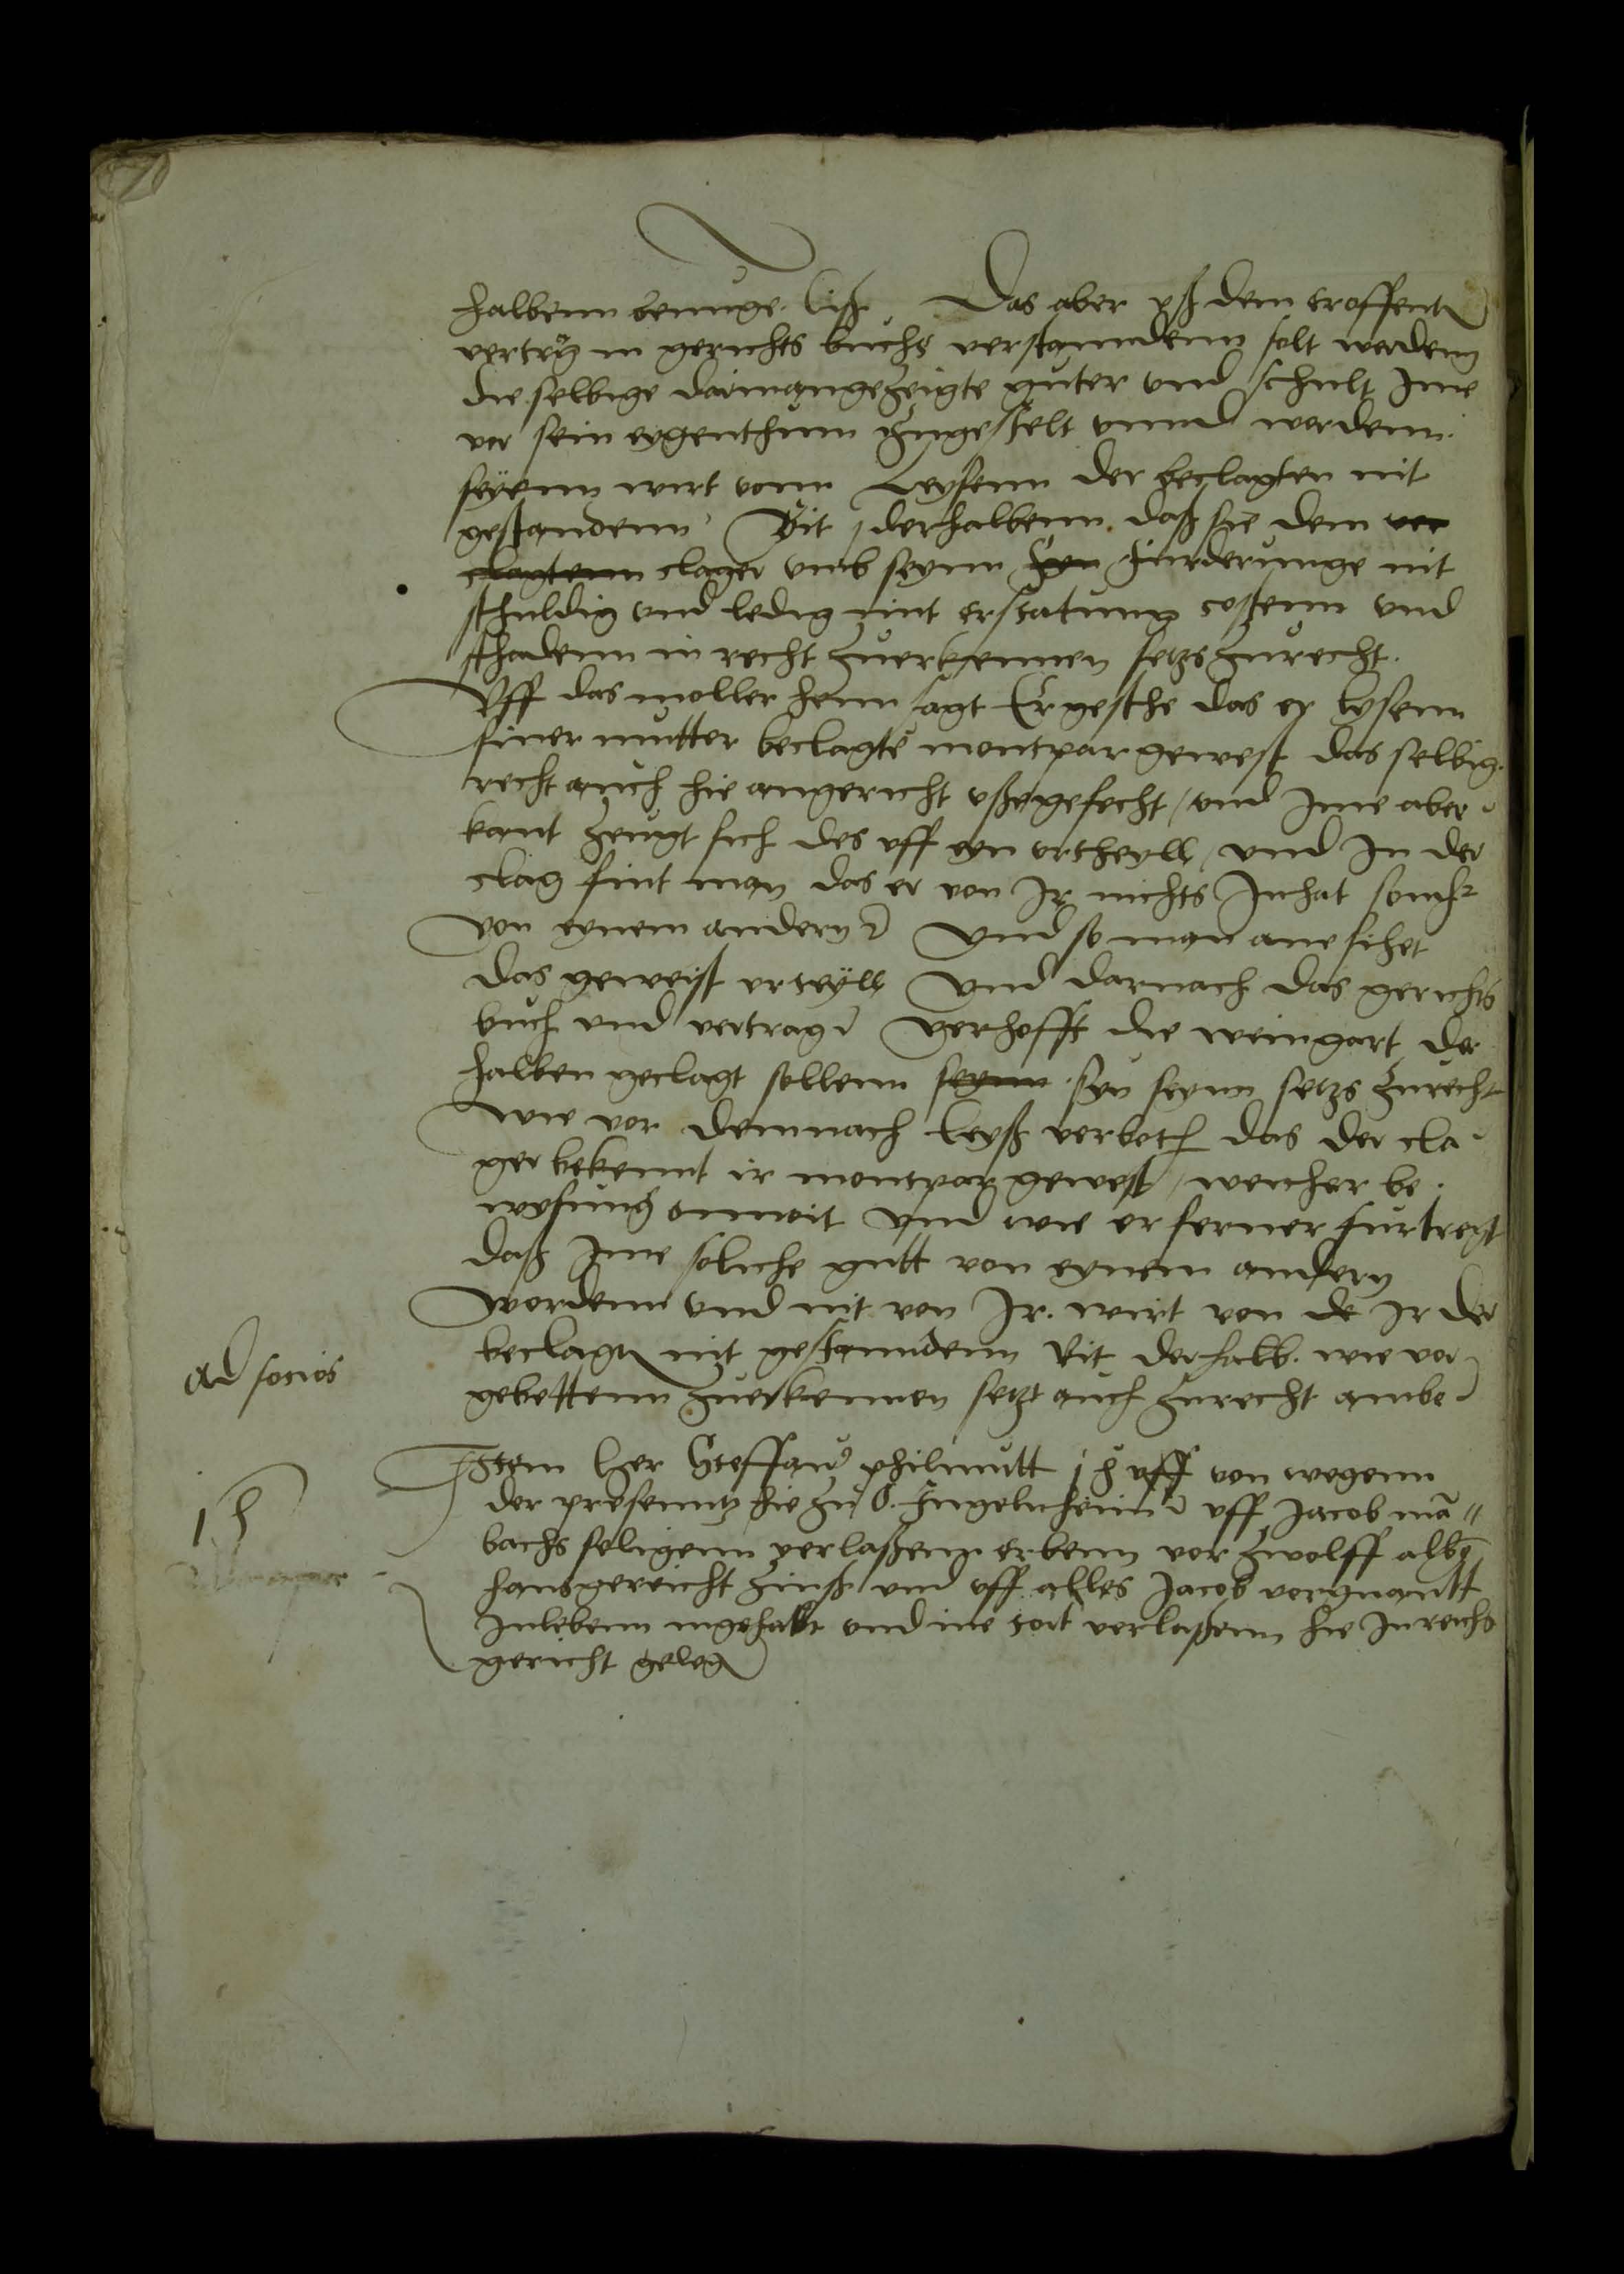 halbenn benuge ließ Das aber uß dem eroffent
vertrag in gerichts buchs verstanndenn solt werdenn
die selbige darinangezeigte guter vnd schult Ime
vor sein eygenthum zugestelt vnnd wordenn
seyenn wirt vonn Leysenn der beclagten nit
gestandenn Bit derhalbenn daß sie dem ver
clagtenn clager vmb seynn furderunge nit
schuldig vnd ledig mit erstatung costenn vnd
schadenn in recht zuerkennen setzs zurecht.
Vff das moller henn sagt Er gesthe das er lysenn
siner mutter beclagte montpar gewest das selbig
recht auch hie angericht vßgefecht / vnd Ime aber
kant zeugt sich des vff eyn vrtheyll / vnd In der
clag fint man das er von Ir nichts Inhat sonder
von eynem andern Vnd so man ane sihet
das geweist vrteyll Vnd darnach das gerichts
buch vnd vertrag Verhofft die weingart der
halben geclagt sollenn seynn syn seynn setzs zurecht
wie vor Demnach Leyß verbot das der cla
ger bekennt ir montpar gewest / welcher be
wysung onnoit Vnd wie er ferner furtregt
daß Ime soliche gutt von eynem andern
wordenn vnd nit von Ir. wirt von de Ir der
beclagten nit gestanndenn Bit derhalb. wie vor
gebettenn zuerkennen setzt auch zurecht ambo
ad socios
Item Her Steffan philmutt j h vff von wegenn
der presenntz hie zu O. Ingelnheim vff Jacob man
1 h
bachs seligenn verlaßenn erbenn vor zwolff alb
hansgereicht zinß vnd vff alles Jacob vorgnantt
Inlebenn ingehabt vnd ine tort verlaßenn hie Inreichs
gericht geleg